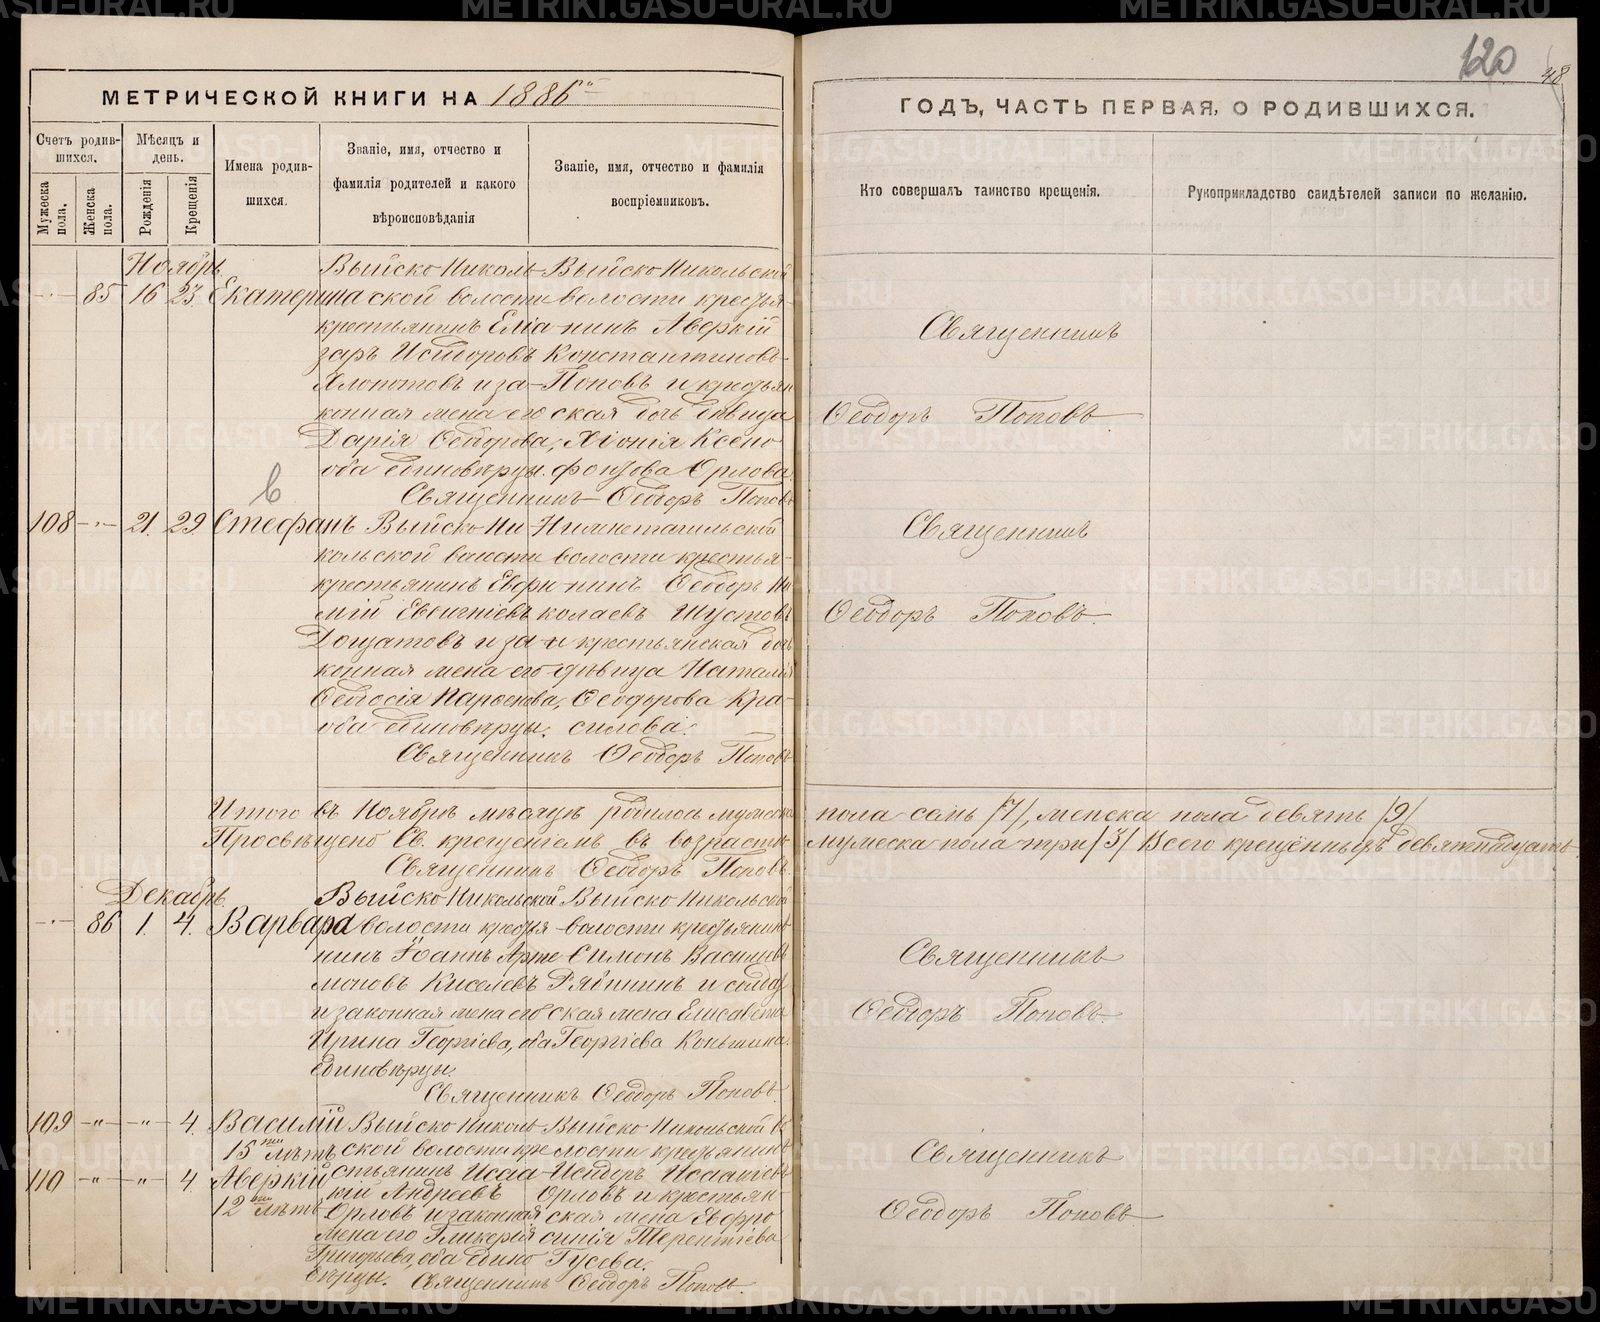 120
48
МЕТРИЧЕСКОЙ КНИГИ НА 1886й
ГОДЪ, ЧАСТЬ ПЕРВАЯ, О РОДИВШИХСЯ.
Счетъ родив-
шихся.
Мужеска пола.
Женска пола.
Мѣсяцъ и
день.
Рожденія
Крещенія
Имена родив-
шихся.
Званіе, имя, отчество и
фамилія родителей и какого
вѣроисповѣданія
Званіе, имя, отчество и фамилія
воспріемниковъ.
Кто совершалъ таинство крещенія.
Рукоприкладство свидѣтелей записи по желанію.
Ноябрь
85 16 23. Екатерина
Выйско Николь-
ской волости
крестьянинъ Еліа-
заръ Исидоровъ
Хлопотовъ и за-
конная жена его
Дарія Ѳедорова,
оба единовѣрцы.
Выйско Никольской
волости крестья-
нинъ Аверкій
Константиновъ
Поповъ и крестьян
ская дочь дѣвица
Хіонія Ксено-
фонтова Орлова.
Священникъ Ѳеодоръ Поповъ
Священникъ
Ѳеодоръ Поповъ
в
108 21. 29. Стефанъ
Выйско Ни-
кольской волости
крестьянинъ Евѳи-
мій Евгеніевъ
Дощатовъ и за-
конная жена его
Ѳедосія
оба единовѣрцы.
Нижнетагильской
волости крестья-
нинъ Ѳеодоръ Ни
колаевъ Шустовъ
и крестьянская дочь
дѣвица Наталія
Ѳеодорова Кра-
силова.
Священникъ Ѳеодоръ Поповъ
Священникъ
Ѳеодоръ Поповъ.
Итого въ Ноябрѣ мѣсяцѣ родилось мужска пола семь /7/, женска пола девять /9/
Просвѣщено Св. крещеніемъ въ возрастѣ мужеска пола три /3/ Всего крещённыхъ девятнадцать.
Священникъ Ѳеодоръ Поповъ.
Декабрь
86 1. 4. Варвара
Выйско Никольской
волости крестья-
нинъ Іоаннъ Арте
моновъ Киселевъ
и законная жена его
Ирина Георгіева, оба
единовѣрцы.
Выйско Никольской
волости крестьянинъ
Симонъ Василіевъ
Рябининъ и солдат
ская жена Елисавета
Георгіева Коньшина.
Священникъ Ѳеодоръ Поповъ.
Священникъ
Ѳеодоръ Поповъ.
109 4. Василій
15ти лѣтъ
110 4. Аверкій
12ти лѣтъ
Выйско Николь-
ской волости кре
стьянинъ Исаа
кій Андреевъ
Орловъ и законная
жена его Гликерія
Григорьева, оба едино
вѣрцы.
Выйско Никольской во
лости крестьянинъ
Исидоръ Исаакіевъ
Орловъ и крестьян-
ская жена Евфро
синія Терентіева
Гусева.
Священникъ Ѳеодоръ Поповъ.
Священникъ
Ѳеодоръ Поповъ
METRIKI.GASO-URAL.RU